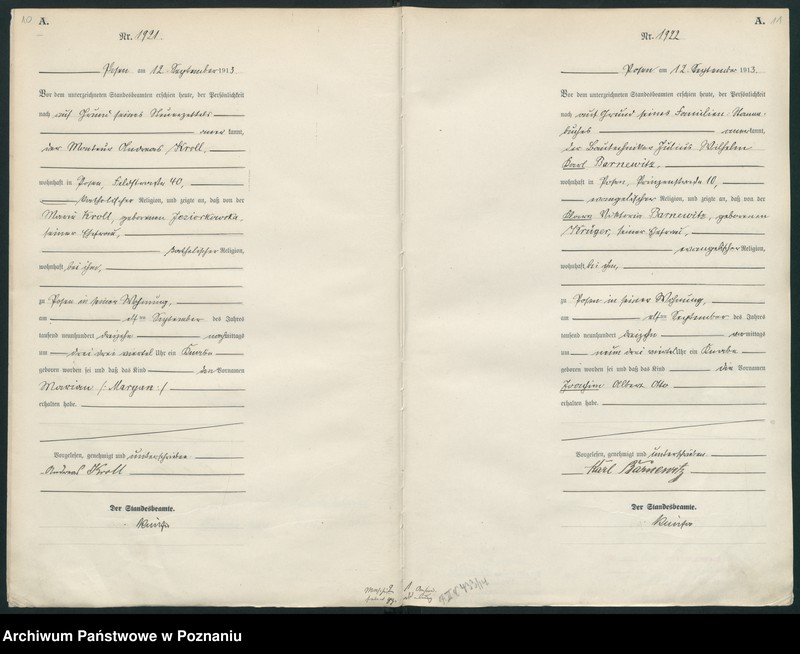 10
A.
Nr. 1921
Posen am 12. September 1913
Vor dem unterzeichneten Standesbeamten erschien heute, der Persönlichkeit
nach auf Grund seines Steuerzettels
anerkannt,
der Monteur Andreas Kroll,
wohnhaft in Posen, Feldstraße 40,
katholischer Religion, und zeigte an, daß von der
Maria Kroll, geborenen Jeziorkowska,
seiner Ehefrau,
katholischer Religion,
wohnhaft bei ihm,
zu Posen in seiner Wohnung,
am elften September des Jahres
tausend neunhundert dreizehn nachmittags
um drei drei viertel Uhr ein Knabe
geboren worden sei und daß das Kind den Vornamen
Marian /: Maryan :/
erhalten habe.
Vorgelesen, genehmigt und unterschrieben
Andreas Kroll
Der Standesbeamte.
A.
11
Nr. 1922
Posen am 12. September 1913
Vor dem unterzeichneten Standesbeamten erschien heute, der Persönlichkeit
nach auf Grund seines Familien Stamm
buches anerkannt,
der Bautechniker Julius Wilhelm
Karl Barnewitz,
wohnhaft in Posen, Prinzenstraße 10,
evangelischer Religion, und zeigte an, daß von der
Klara Viktoria Barnewitz, geborenen
Krüger, seiner Ehefrau,
evangelischer Religion,
wohnhaft bei ihm,
zu Posen in seiner Wohnung,
am elften September des Jahres
tausend neunhundert dreizehn vormittags
um neun drei viertel Uhr ein Knabe
geboren worden sei und daß das Kind die Vornamen
Joachim Albert Otto
erhalten habe.
Vorgelesen, genehmigt und unterschrieben
Karl Barnewitz
Der Standesbeamte.
Archiwum Państwowe w Poznaniu